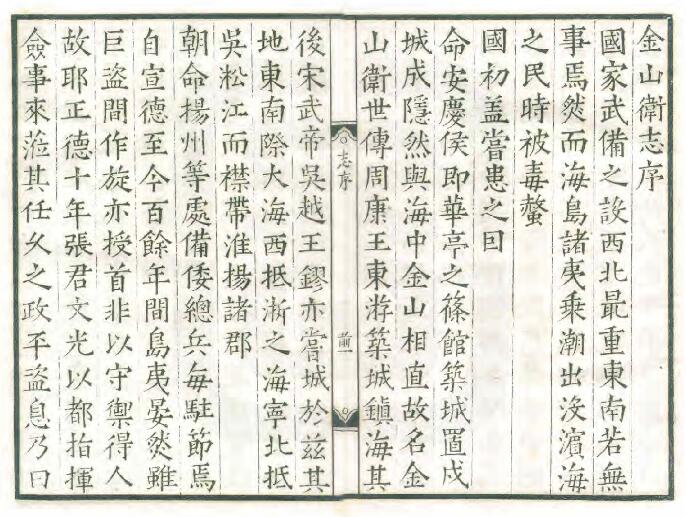 金山衛志序
國家武備之設西北最重東南若無
事焉然而海島諸夷乗潮出没濵海
之民時被毒螫
國初盖嘗患之曰
命安慶侯即華亭之篠館築城置戍
城成隱然與海中金山相直故名金
山衛世傳周康王東游築城鎮海其
志序
前一
後宋武帝吳越王鏐亦嘗城於兹其
地東南際大海西抵淅之海寧北抵
吳松江而襟帶淮揚諸郡
朝命揚州等處備倭總兵每駐節焉
自宣德至今百餘年間島夷晏然雖
巨盗間作旋亦授首非以守禦得人
故耶正德十年張君文光以都指揮
僉事來蒞其任久之政平盗息乃曰